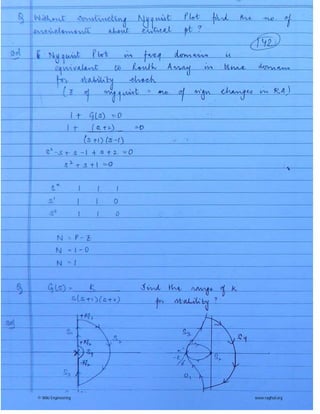 Q Without constructing Nyquist Plot find the no. of
encirclements about critical pt ?
142
Sol Nyquist Plot in freq domain is
equivalent to Routh Array in time domain
for stability check
(Z of nyquist = no. of sign changes in RA)
1 + G(s) = 0
1 + (s+2) = 0
(s+1)(s-1)
s² - s + s - 1 + s + 2 = 0
s² + s + 1 = 0
s² 1 1
s¹ 1 0
s⁰ 1 0
N = P - Z
N = 1 - 0
N = 1
Q G(s) = K Find the range of K
s(s+1)(s+2) for stability ?
Sol
© Wiki Engineering www.raghul.org